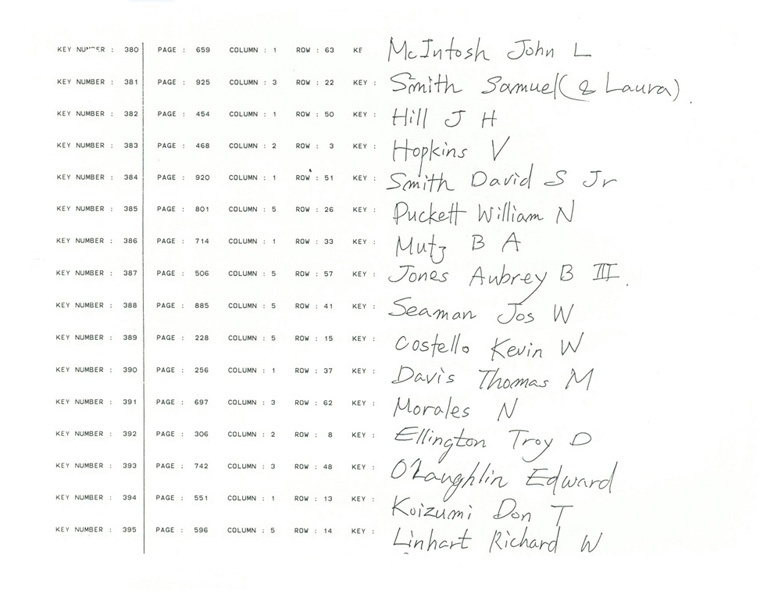 KEY NUMBER : 380 PAGE : 659 COLUMN : 1 ROW : 63 KE McIntosh John L
KEY NUMBER : 381 PAGE : 925 COLUMN : 3 ROW : 22 KEY : Smith Samuel (& Laura).
KEY NUMBER : 382 PAGE : 454 COLUMN : 1 ROW : 50 KEY : Hill J H
KEY NUMBER : 383 PAGE : 468 COLUMN : 2 ROW : 3 KEY : Hopkins V
KEY NUMBER : 384 PAGE : 920 COLUMN : 1 ROW : 51 KEY : Smith David S Jr
KEY NUMBER : 385 PAGE : 801 COLUMN : 5 ROW : 26 KEY : Puckett William N
KEY NUMBER : 386 PAGE : 714 COLUMN : 1 ROW : 33 KEY : Mutz B A
KEY NUMBER : 387 PAGE : 506 COLUMN : 5 ROW : 57 KEY : Jones Aubrey B III.
KEY NUMBER : 388 PAGE : 885 COLUMN : 5 ROW : 41 KEY : Seaman Jos W
KEY NUMBER : 389 PAGE : 228 COLUMN : 5 ROW : 15 KEY : Costello Kevin W
KEY NUMBER : 390 PAGE : 256 COLUMN : 1 ROW : 37 KEY : Davis Thomas M
KEY NUMBER : 391 PAGE : 697 COLUMN : 3 ROW : 62 KEY : Morales N
KEY NUMBER : 392 PAGE : 306 COLUMN : 2 ROW : 8 KEY : Ellington Troy D
KEY NUMBER : 393 PAGE : 742 COLUMN : 3 ROW : 48 KEY : O'Laughlin Edward
KEY NUMBER : 394 PAGE : 551 COLUMN : 1 ROW : 13 KEY : Koizumi Don T
KEY NUMBER : 395 PAGE : 596 COLUMN : 5 ROW : 14 KEY : Linhart Richard W